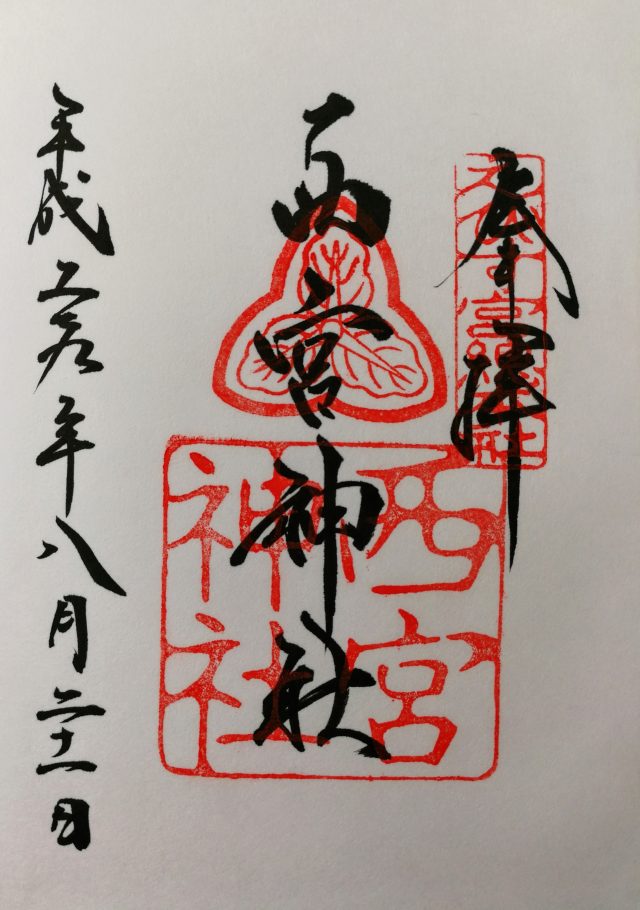 奉拝
西宮神社
西宮
神社
平成二九年八月二十一日